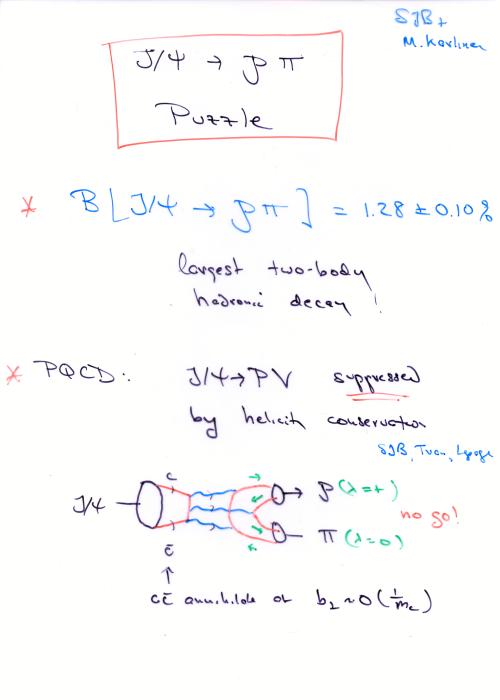 SJB +
M. Karliner
J/ψ → ρ π
Puzzle
* B [J/ψ → ρ π] = 1.28 ± 0.10 %
largest two-body
hadronic decay !
* PQCD: J/ψ → PV suppressed
by helicity conservation
SJB, Tuan, Lepage
J/ψ
c
c̄
ρ (λ=+)
no go!
π (λ=0)
↑
cc̄ annihilate at b⊥ ~ O(1/mc)